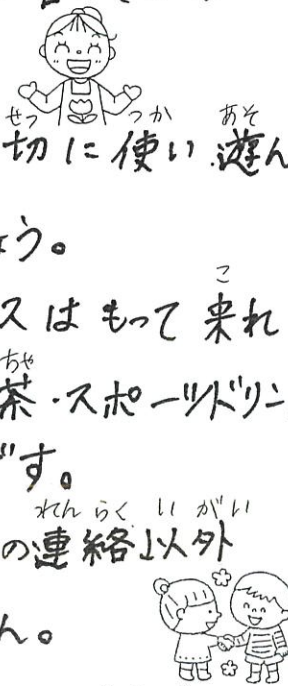 せつ つか あそ
切に使い遊ん
ょう。
こ
スはもって来れ
ちゃ
茶・スポーツドリン
です。
れんらくいがい
の連絡以外
ん。